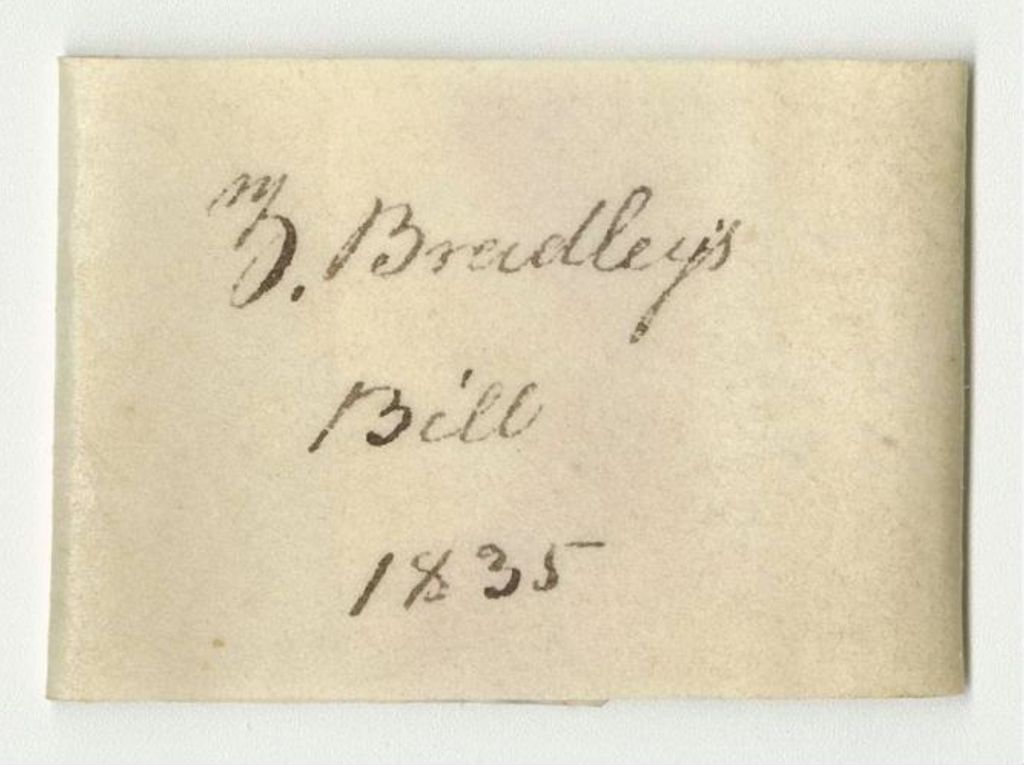 Z. Bradley's
Bill
1835